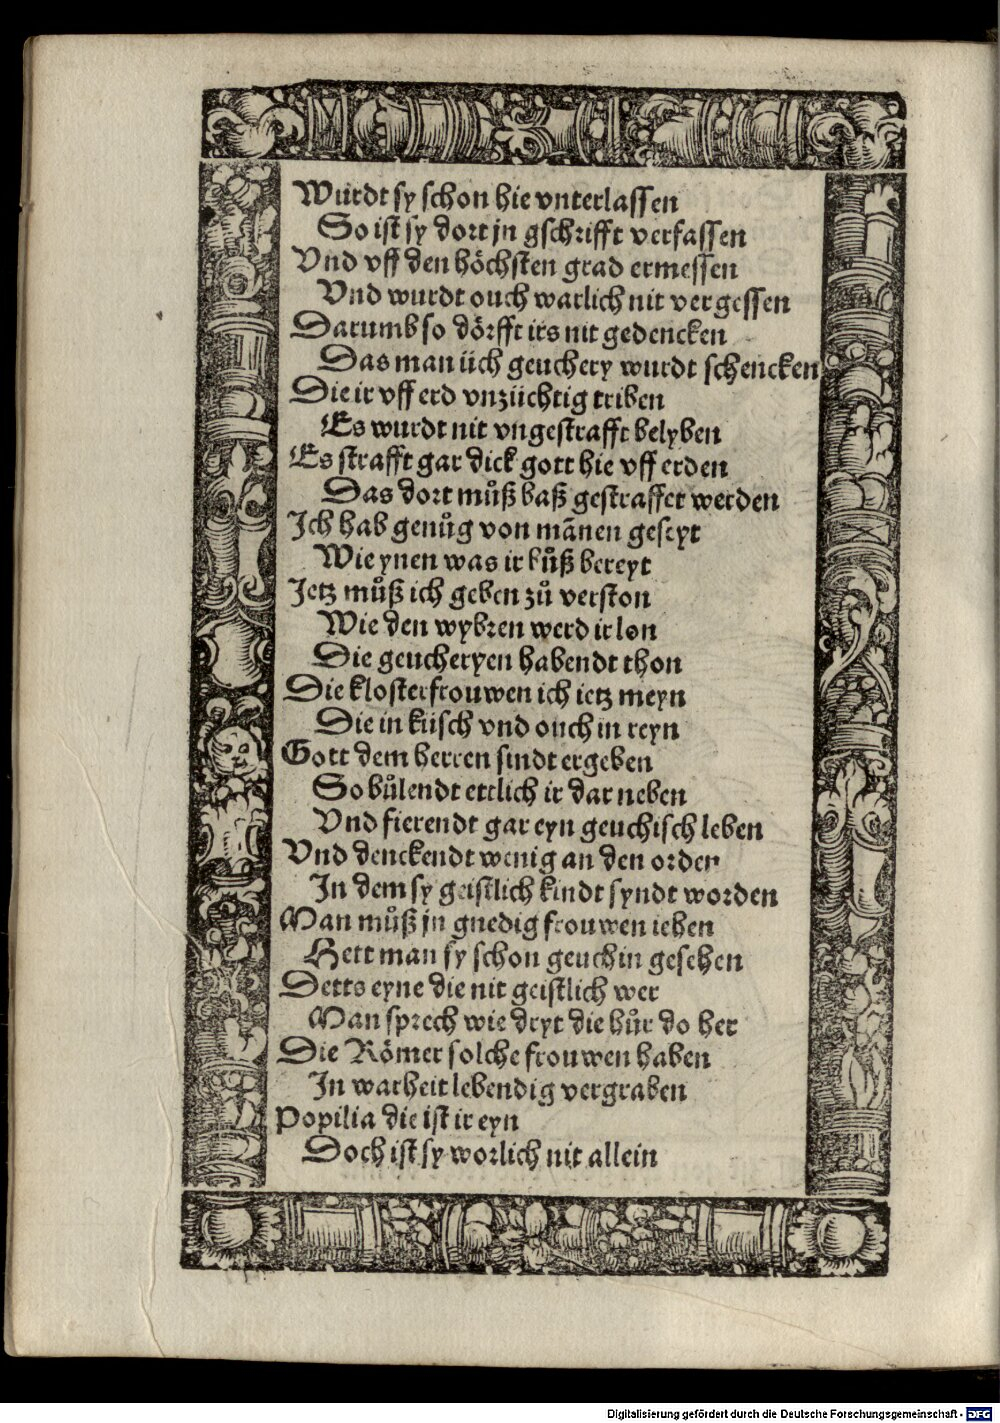 Wurdt sy schon hie vnterlassen
So ist sy dort jn gschrifft verfassen
Vnd vff den höchsten grad ermessen
Vnd wurdt ouch warlich nit vergessen
Darumb so dörfft irs nit gedencken
Das man üch geuchery wurdt schencken
Die ir vff erd vnzüchtig triben
Es wurdt nit vngestrafft belyben
Es strafft gar dick gott hie vff erden
Das dort můß baß gestraffet werden
Ich hab genůg von mãnen geseyt
Wie ynen was ir bůß bereyt
Jetz můß ich geben zů verston
Wie den wybren werd ir lon
Die geucheryen habendt thon
Die klosterfrouwen ich ietz meyn
Die in küsch vnd ouch in reyn
Gott dem herren sindt ergeben
So bůlendt ettlich ir dar neben
Vnd fierendt gar eyn geuchisch leben
Vnd denckendt wenig an den orden
In dem sy geistlich kindt syndt worden
Man můß jn gnedig frouwen iehen
Hett man sy schon geuchin gesehen
Detts eyne die nit geistlich wer
Man sprech wie dryt die hůr do her
Die Römer solche frouwen haben
In warheit lebendig vergraben
Popilia die ist ir eyn
Doch ist sy worlich nit allein
Digitalisierung gefördert durch die Deutsche Forschungsgemeinschaft - DFG